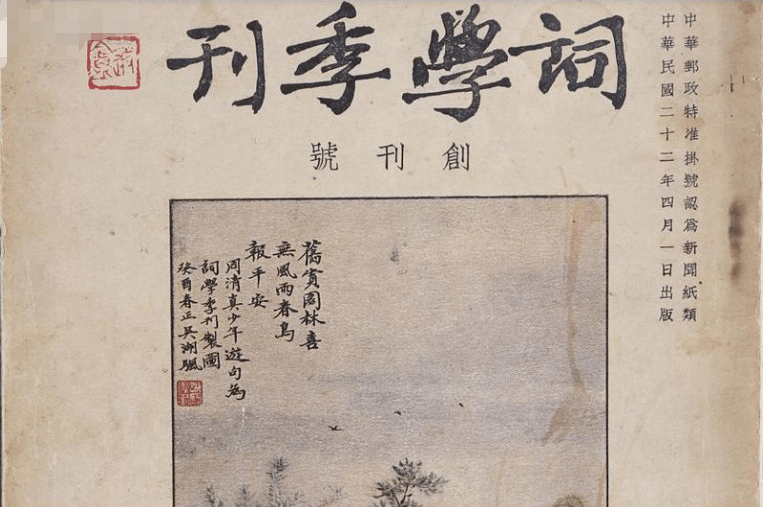 中華郵政特准掛號認爲新聞紙類
中華民國二十二年四月一日出版
詞學季刊
創刊號
舊賞園林喜
無風雨春鳥
報平安
周清真少年遊句為
詞學季刊製圖
癸酉春正吳湖颿